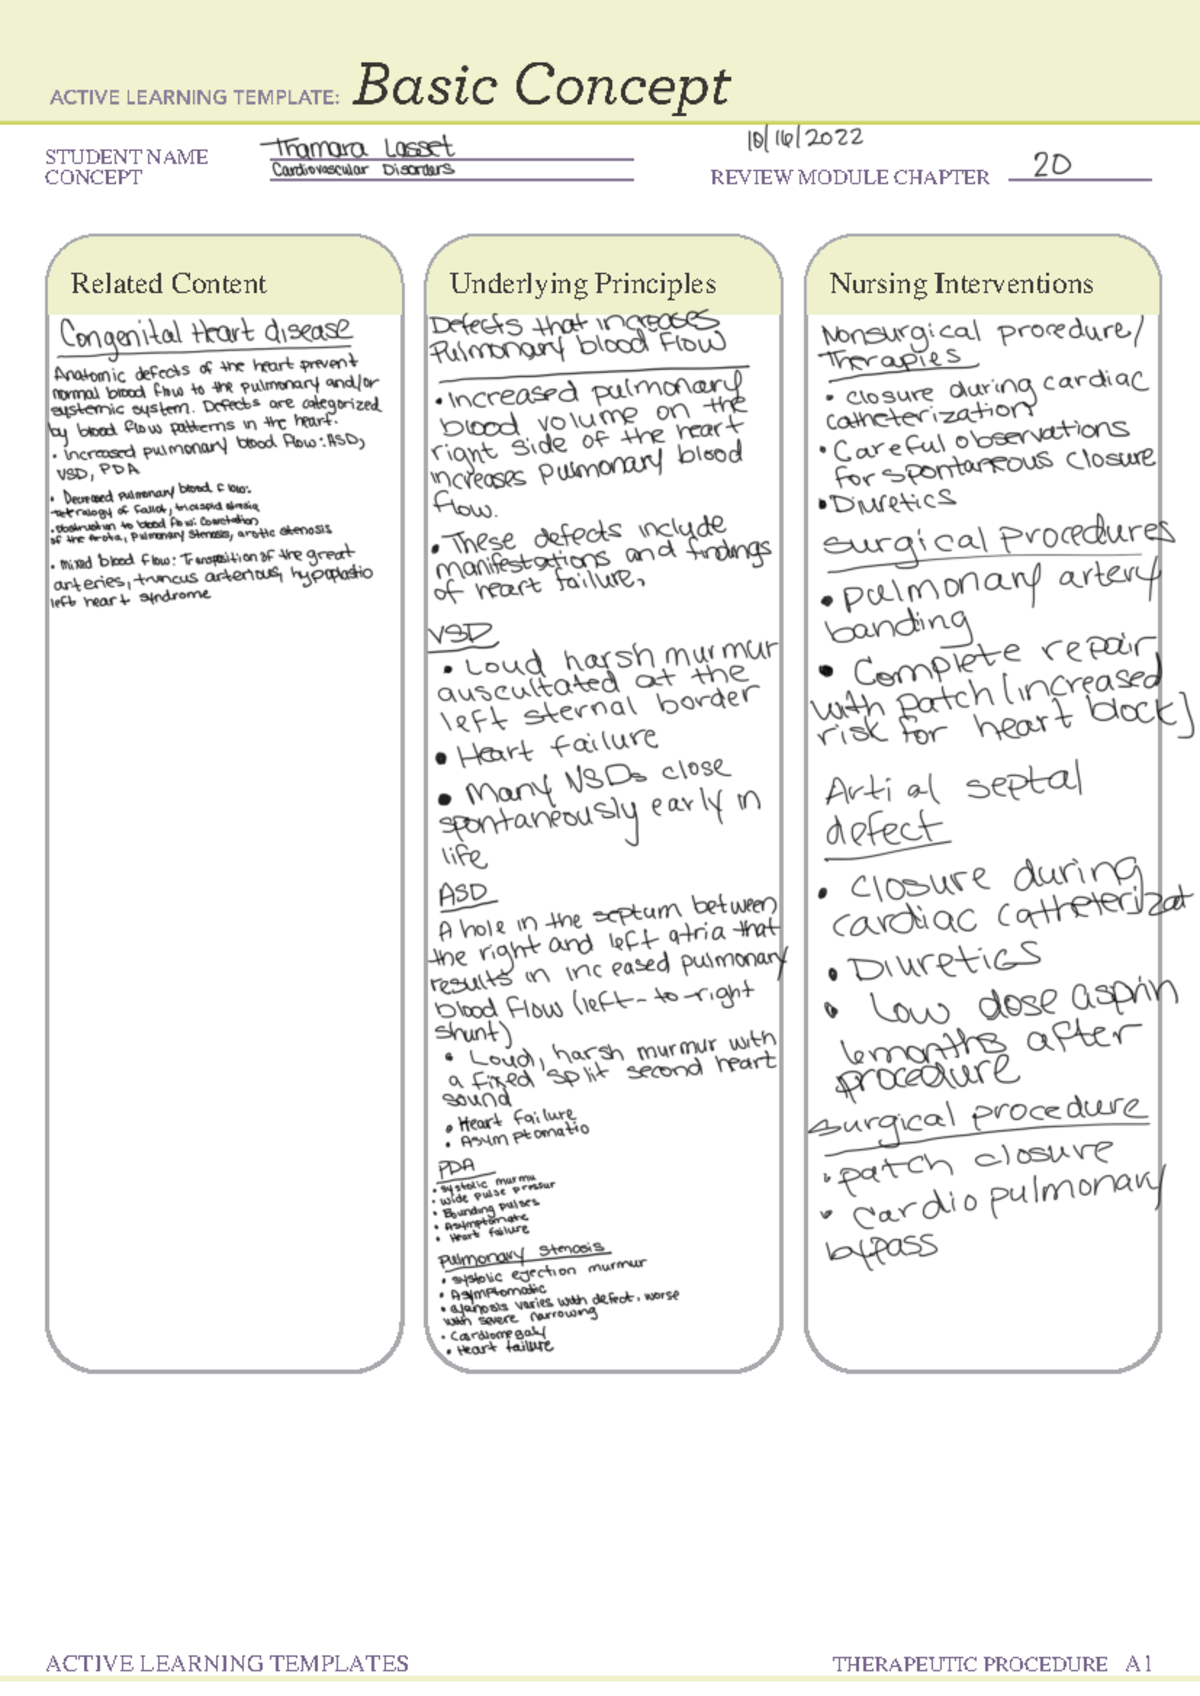 ACTIVE LEARNING TEMPLATE: Basic Concept
STUDENT NAME Thamara Lasset
CONCEPT Cardiovascular Disorders
10/16/2022
REVIEW MODULE CHAPTER 20
Related Content
Congenital Heart disease
Anatomic defects of the heart prevent
normal blood flow to the pulmonary and/or
systemic system. Defects are categorized
by blood flow patterns in the heart.
• increased pulmonary blood flow: ASD,
VSD, PDA
• Decreased pulmonary blood flow:
tetralogy of fallot, tricuspid atresia
• obstruction to blood flow: Coarctation
of the Arota, Pulmonary Stenosis, arotic stenosis
• mixed blood flow: Transposition of the great
arteries, truncus arterious, hypoplastic
left heart syndrome
Underlying Principles
Defects that increases
Pulmonary blood Flow
• Increased pulmonary
blood volume on the
right side of the heart
increases pulmonary blood
flow.
• These defects include
manifestations and findings
of heart failure.
VSD
• Loud harsh murmur
auscultated at the
left sternal border
• Heart failure
• Many VSDs close
spontaneously early in
life
ASD
A hole in the septum between
the right and left atria that
results in inceased pulmonary
blood flow (left-to-right
shunt)
• Loud, harsh murmur with
a fixed split second heart
sound
• Heart failure
• Asymptomatic
PDA
• Systolic murmu
• wide pulse pressur
• Bounding pulses
• Asymptomatc
• Heart failure
Pulmonary Stenosis
• systolic ejection murmur
• Asymptomatic
• cyanosis varies with defect, worse
with severe narrowing
• Cardiomegaly
• Heart failure
Nursing Interventions
Nonsurgical procedure/
Therapies
• closure during cardiac
catheterization
• Careful observations
for spontaneous closure
• Diuretics
surgical procedures
• pulmonary artery
banding
• Complete repair
with patch (increased
risk for heart block)
Artial septal
defect
• Closure during
cardiac catheterizat
• Diuretics
• Low dose asprin
6months after
procedure
surgical procedure
• patch closure
• Cardiopulmonary
bypass
ACTIVE LEARNING TEMPLATES
THERAPEUTIC PROCEDURE A1